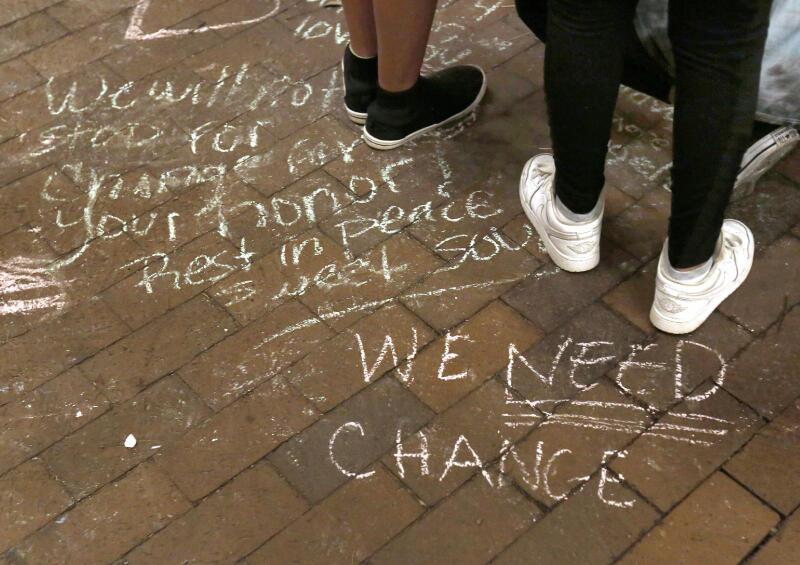 We will not
stop for
change for
your honor!
Rest in peace
sweet soul
WE NEED
CHANGE